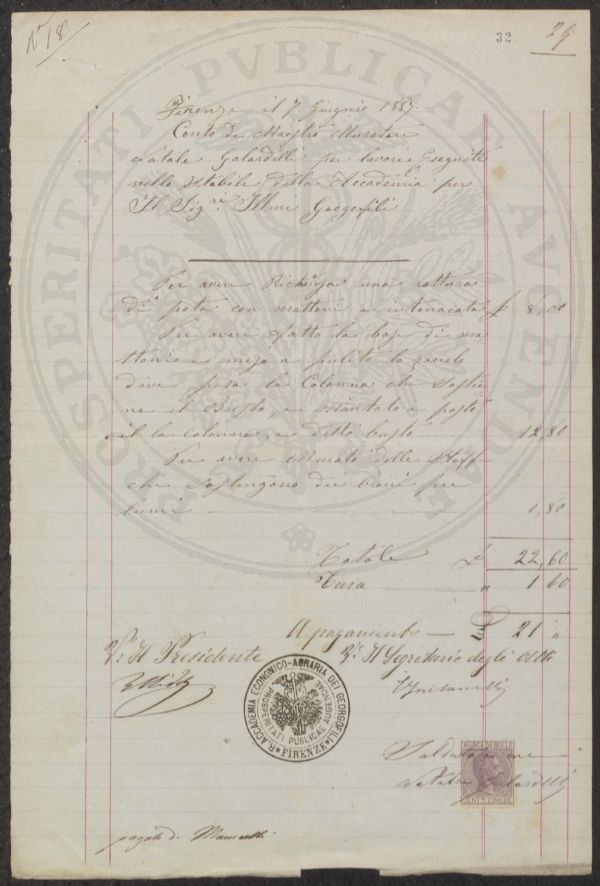 N° 18
32
29
Firenze il 7 Giugnio 1889.
Conto di Maestro Muratore
Natale Galardelli per lavori Eseguiti
nello Stabile della Accademia per
Il Sig.ri Georgofili
Per avere Richiusa una rottura
di porta con mattoni e intonacata £ 8,00
Per avere fatto la base di ma
ttoni e mezo a pulito lo zocolo
dove posa la Colonna che Sostie
ne il Busto, e Montato a posto
il la Colonna, e detto busto 12,80
Per avere Murato delle Staff
che Sostengono dei bracci per
lumi 1,80
Totale £ 22,60
Tara " 1 60
A pagamento £ 21 "
V° Il Presidente
V° Il Segretario degli Atti
R. ACCADEMIA ECONOMICO-AGRARIA DEI GEORGOFILI
FIRENZE
PROSPERITATI PUBLICAE AUGENDAE
Saldato a me
Natale Galardelli
MARCA DA BOLLO
CENT.MI CINQUE
pagate di
PROSPERITATI PUBLICAE AVGENDAE